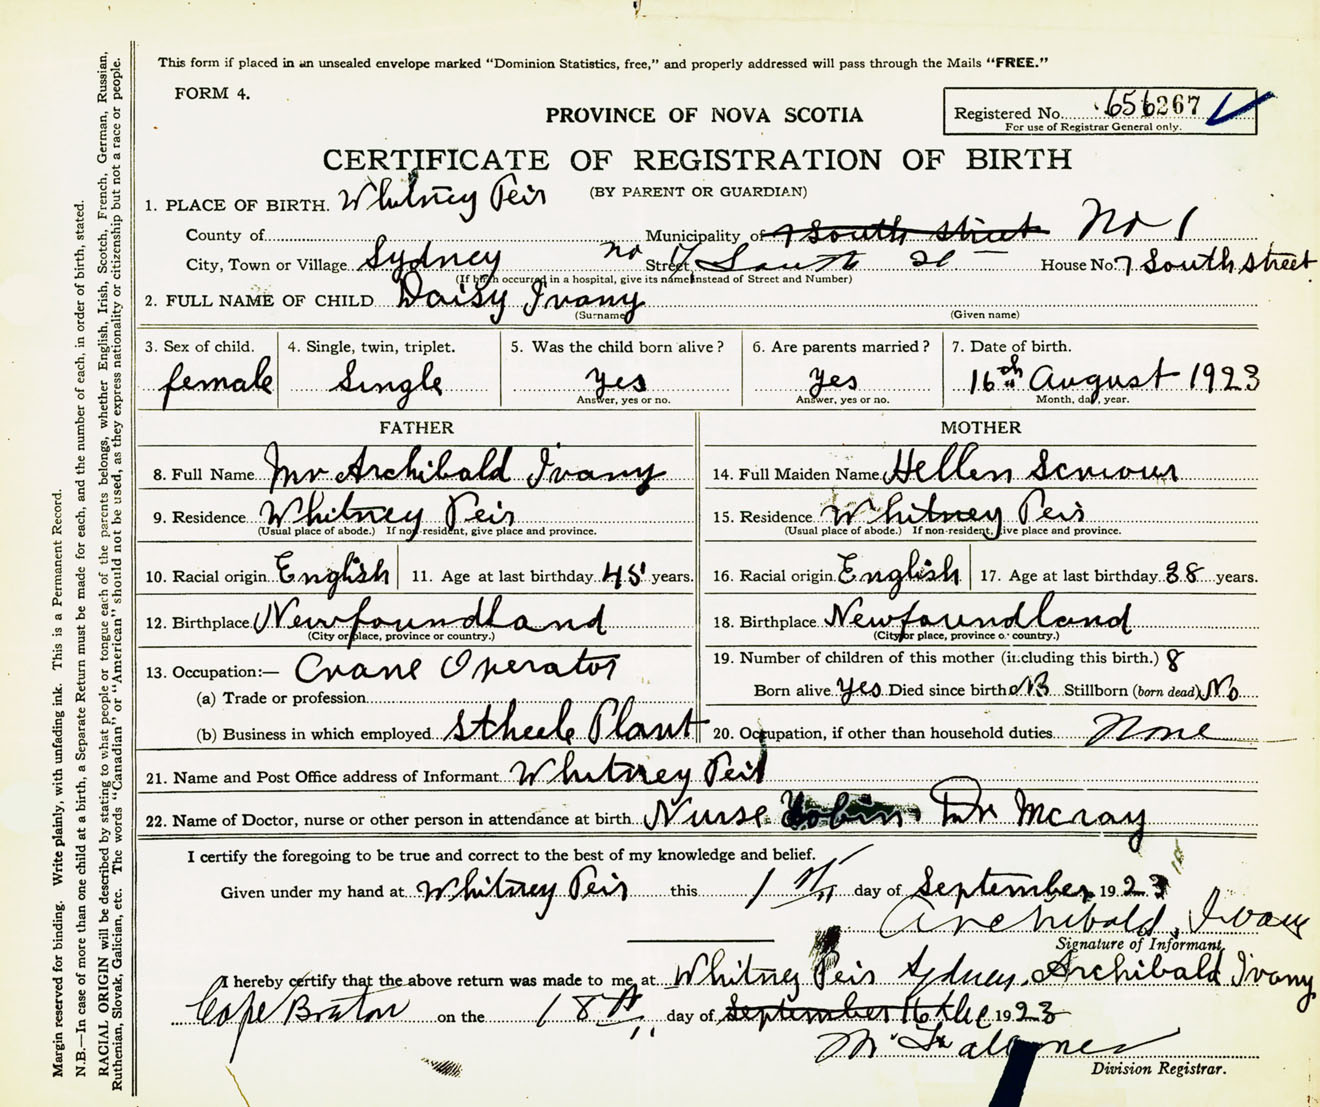 This form if placed in an unsealed envelope marked "Dominion Statistics, free," and properly addressed will pass through the Mails "FREE."
FORM 4.
PROVINCE OF NOVA SCOTIA
Registered No. 656267
For use of Registrar General only.
CERTIFICATE OF REGISTRATION OF BIRTH
(BY PARENT OR GUARDIAN)
1. PLACE OF BIRTH. Whitney Peir
County of Municipality of 7 South Street No 1
City, Town or Village Sydney no Street 7 South St House No. 7 South Street
(If birth occurred in a hospital, give its name instead of Street and Number)
2. FULL NAME OF CHILD Daisy Ivany
(Surname) (Given name)
3. Sex of child. 4. Single, twin, triplet. 5. Was the child born alive? 6. Are parents married? 7. Date of birth.
female Single yes yes 16th August 1923
Answer, yes or no. Answer, yes or no. Month, day, year.
FATHER MOTHER
8. Full Name Mr Archibald Ivany 14. Full Maiden Name Hellen
9. Residence Whitney Peir 15. Residence Whitney Peir
(Usual place of abode.) If non-resident, give place and province. (Usual place of abode.) If non-resident, give place and province.
10. Racial origin English 11. Age at last birthday 45 years. 16. Racial origin English 17. Age at last birthday 38 years.
12. Birthplace Newfoundland 18. Birthplace Newfoundland
(City or place, province or country.) (City or place, province or country.)
13. Occupation:— Crane Operator 19. Number of children of this mother (including this birth.) 8
(a) Trade or profession Born alive yes Died since birth Stillborn (born dead) No
(b) Business in which employed Stheele Plant 20. Occupation, if other than household duties None
21. Name and Post Office address of Informant Whitney Peir
22. Name of Doctor, nurse or other person in attendance at birth Nurse Tobin Dr McCray
I certify the foregoing to be true and correct to the best of my knowledge and belief.
Given under my hand at Whitney Peir this 1st day of September 1923
Archibald Ivany
Signature of Informant
I hereby certify that the above return was made to me at Whitney Peir Sydney. Archibald Ivany
Cape Braton on the 18th day of September 16th 1923
Division Registrar.
Margin reserved for binding. Write plainly, with unfading ink. This is a Permanent Record.
N.B.—In case of more than one child at a birth, a Separate Return must be made for each, and the number of each, in order of birth, stated.
RACIAL ORIGIN will be described by stating to what people or tongue each of the parents belongs, whether English, Irish, Scotch, French, German, Russian,
Ruthenian, Slovak, Galician, etc. The words "Canadian" or "American" should not be used, as they express nationality or citizenship but not a race or people.